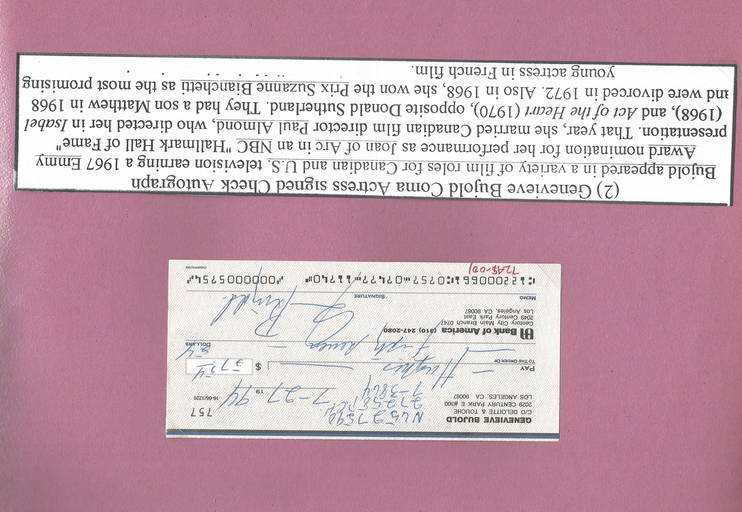 GENEVIEVE BUJOLD
C/O DELOITTE & TOUCHE
2029 CENTURY PARK E #300
LOS ANGELES, CA 90067
757
16-66/1220
7-27 19 94
PAY
TO THE ORDER OF
Hughes
$ 57.54
DOLLARS
Bank of America (310) 247-2080
Century City Main Branch 0747
2049 Century Park East
Los Angeles, CA 90067
MEMO
SIGNATURE
G Bujold
(2) Genevieve Bujold Coma Actress signed Check Autograph
Bujold appeared in a variety of film roles for Canadian and U.S. television earning a 1967 Emmy
Award nomination for her performance as Joan of Arc in an NBC "Hallmark Hall of Fame"
presentation. That year, she married Canadian film director Paul Almond, who directed her in Isabel
(1968), and Act of the Heart (1970), opposite Donald Sutherland. They had a son Matthew in 1968
and were divorced in 1972. Also in 1968, she won the Prix Suzanne Bianchetti as the most promising
young actress in French film.